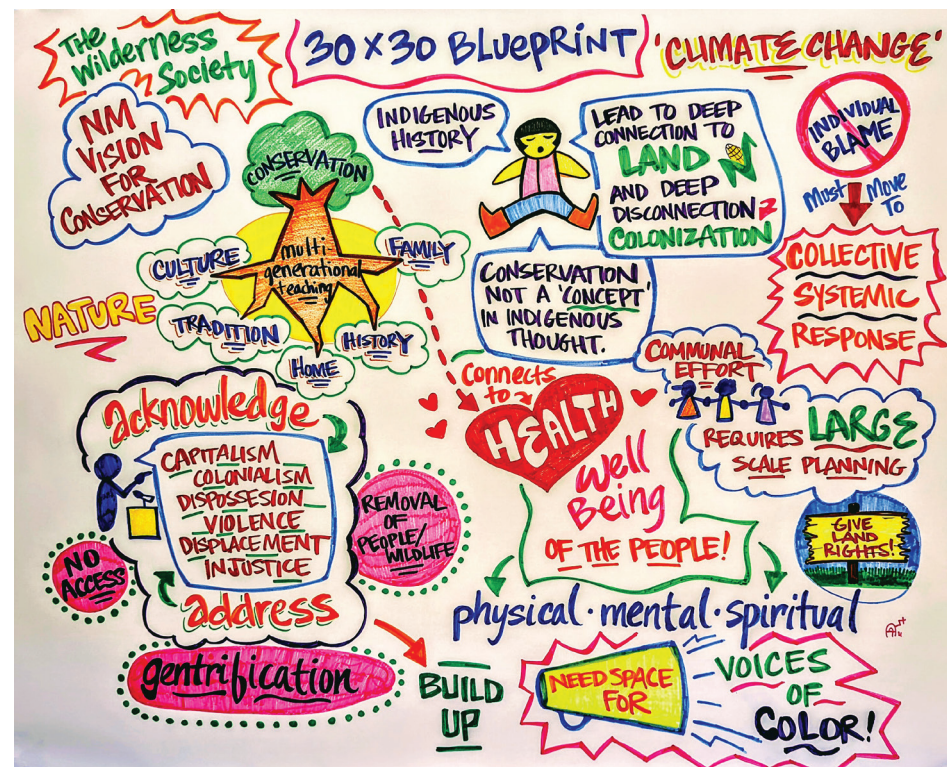 The
Wilderness
Society
30 x 30 BLUEPRINT
'CLIMATE CHANGE'
NM
VISION
FOR
CONSERVATION
CONSERVATION
multi
generational
teaching
CULTURE
FAMILY
TRADITION
HISTORY
HOME
NATURE
INDIGENOUS
HISTORY
LEAD TO DEEP
CONNECTION TO
LAND
AND DEEP
DISCONNECTION
COLONIZATION
CONSERVATION
NOT A 'CONCEPT'
IN INDIGENOUS
THOUGHT.
INDIVIDUAL
BLAME
Must Move
To
COLLECTIVE
SYSTEMIC
RESPONSE
COMMUNAL
EFFORT
REQUIRES LARGE
SCALE PLANNING
GIVE
LAND
RIGHTS!
connects
to
HEALTH
Well
Being
OF THE PEOPLE!
physical · mental · spiritual
acknowledge
CAPITALISM
COLONIALISM
DISPOSSESION
VIOLENCE
DISPLACEMENT
INJUSTICE
address
NO
ACCESS
REMOVAL
OF
PEOPLE/
WILDLIFE
gentrification
BUILD
UP
NEED SPACE
FOR
VOICES
OF
COLOR!